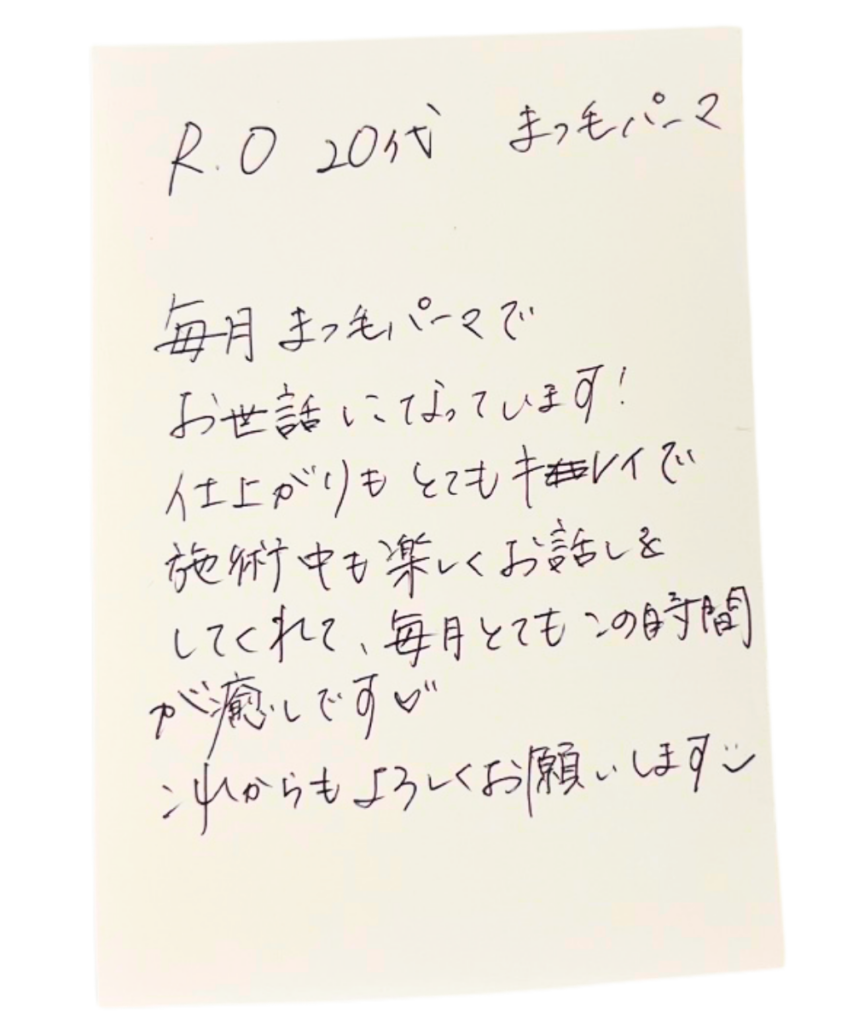 R.O 20代 まつ毛パーマ
毎月まつ毛パーマで
お世話になっています!
仕上がりもとてもキレイで
施術中も楽しくお話しを
してくれて、毎月とてもこの時間
が癒しです♡
これからもよろしくお願いします